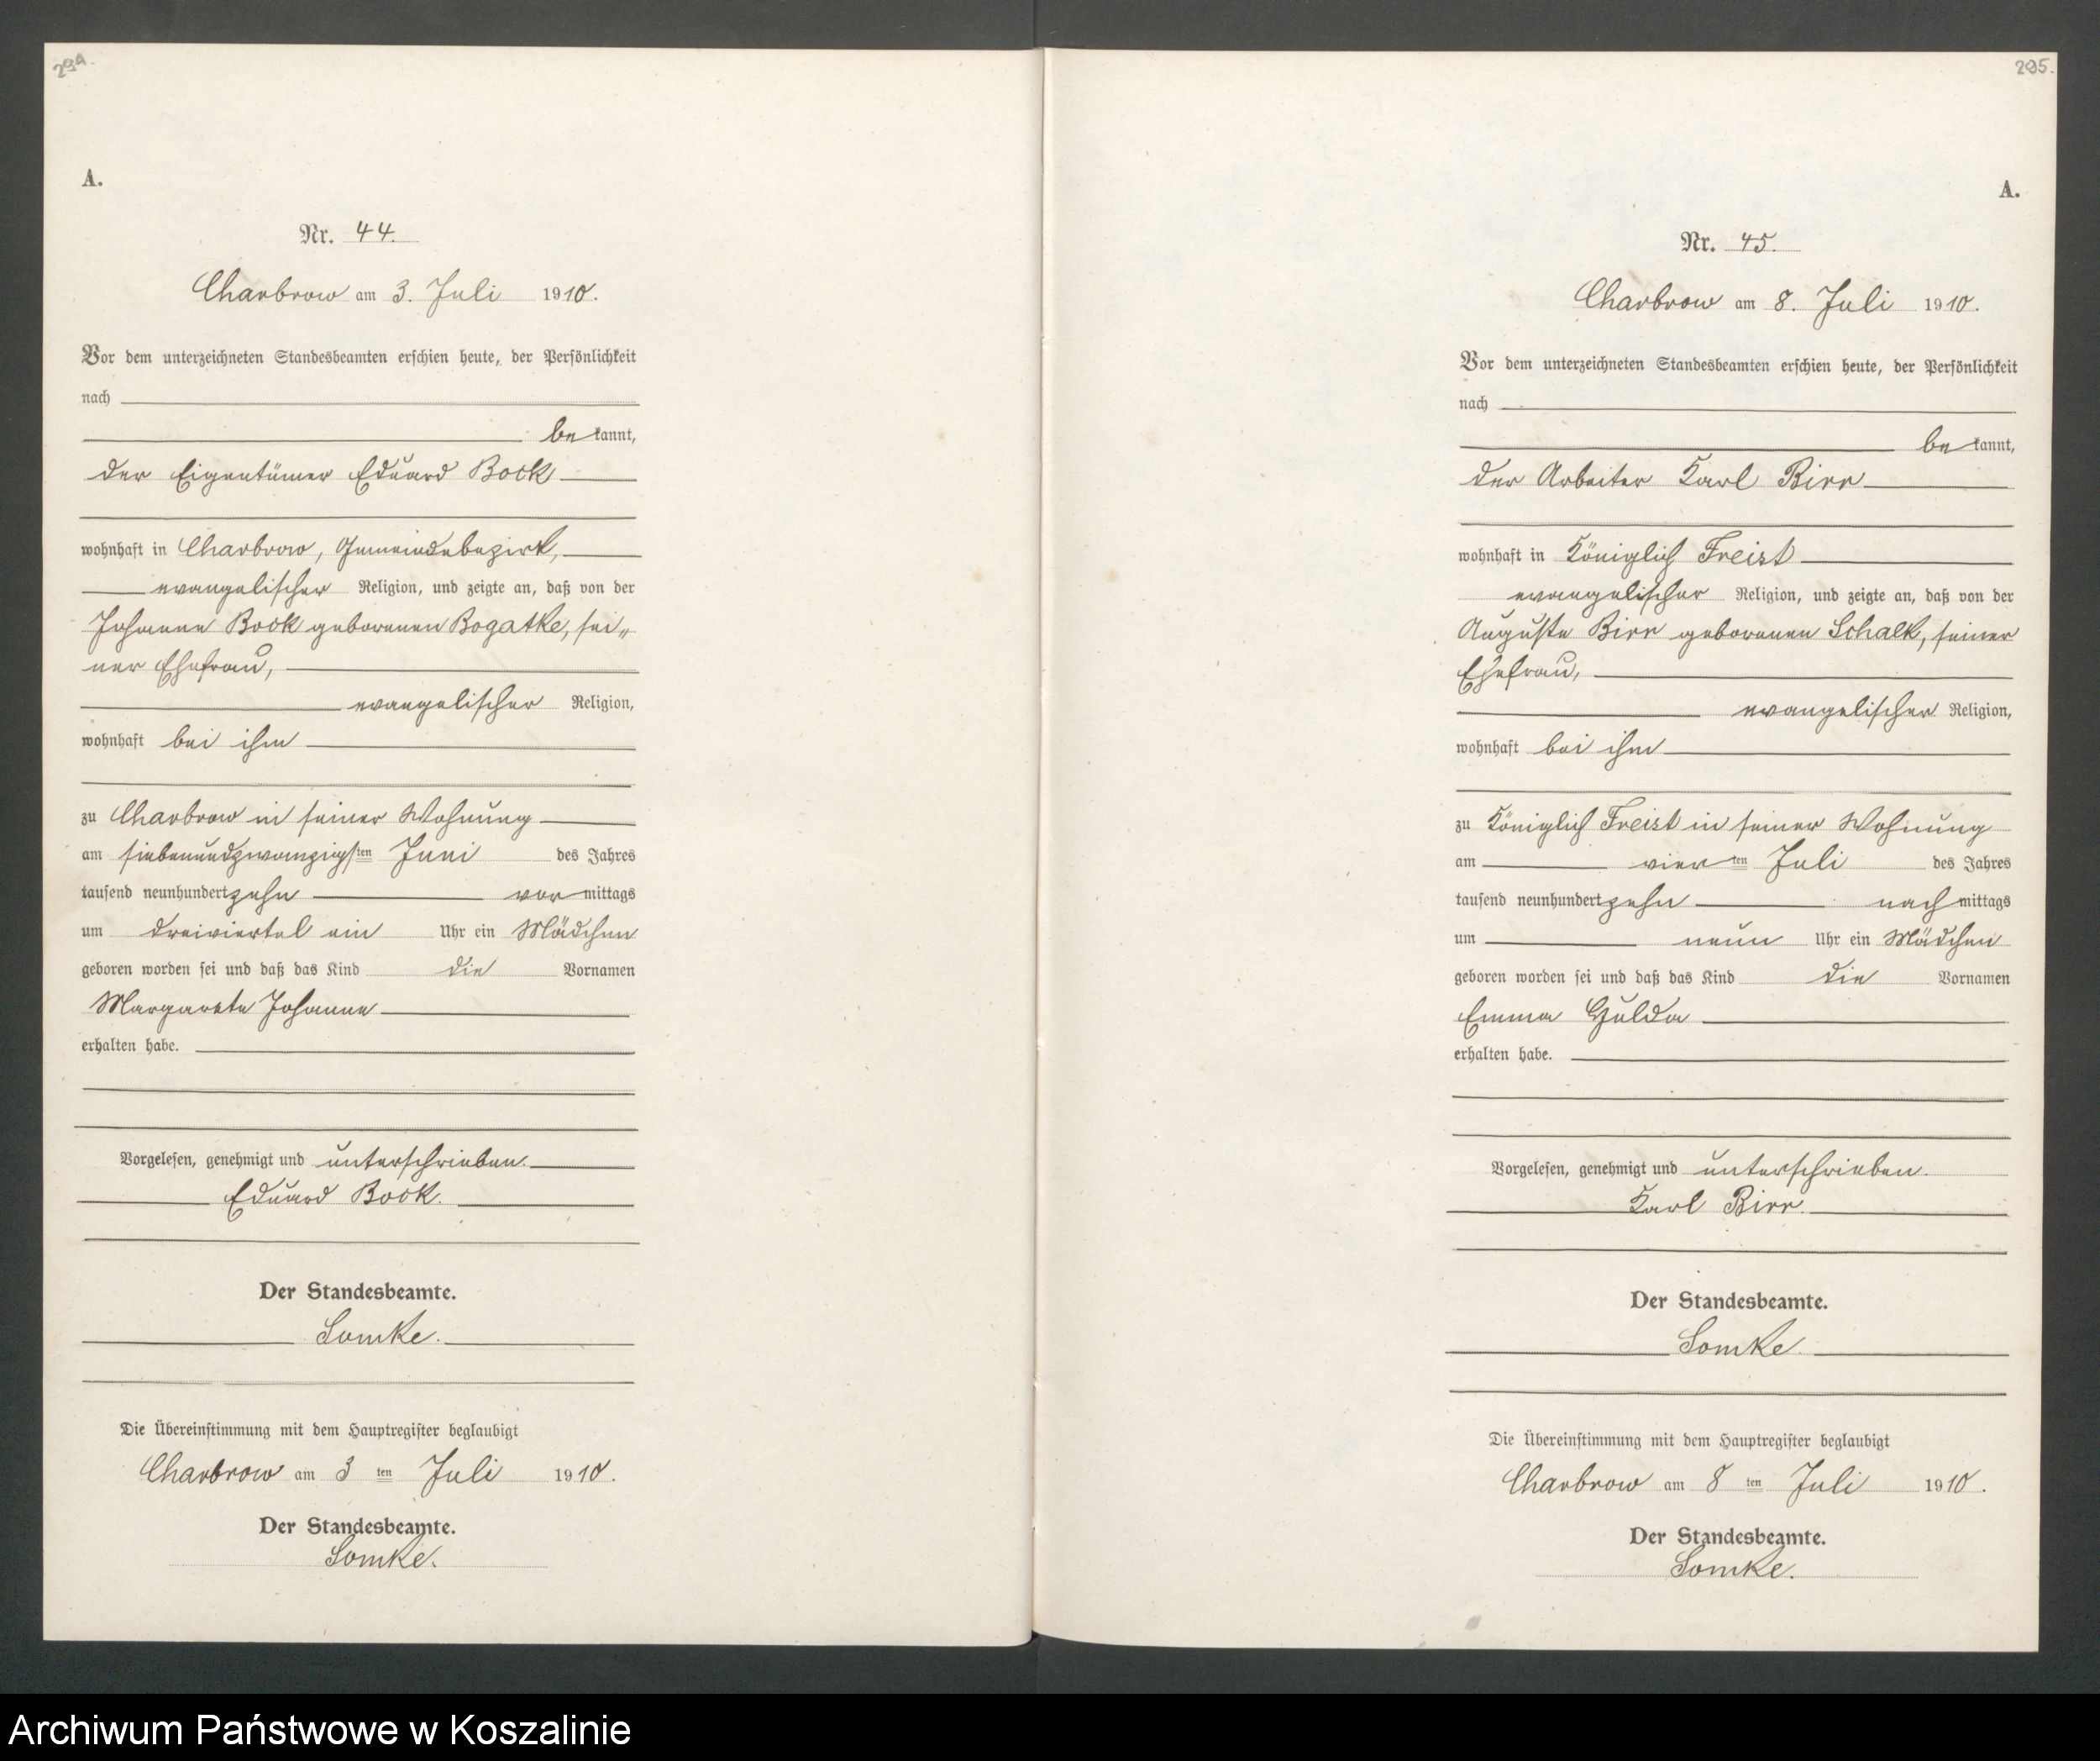 294.
A.
Nr. 44.
Charbrow am 3. Juli 1910.
Vor dem unterzeichneten Standesbeamten erschien heute, der Persönlichkeit
nach
be kannt,
der Eigentümer Eduard Bock
wohnhaft in Charbrow, Gemeindebezirk,
evangelischer Religion, und zeigte an, daß von der
Johanne Bock geborenen Bogatke, sei„
ner Ehefrau,
evangelischer Religion,
wohnhaft bei ihm
zu Charbrow in seiner Wohnung
am siebenundzwanzigsten Juni des Jahres
tausend neunhundertzehn vor mittags
um dreiviertel ein Uhr ein Mädchen
geboren worden sei und daß das Kind die Vornamen
Margarete Johanne
erhalten habe.
Vorgelesen, genehmigt und unterschrieben.
Eduard Bock.
Der Standesbeamte.
Lomke.
Die Übereinstimmung mit dem Hauptregister beglaubigt
Charbrow am 3 ten Juli 1910.
Der Standesbeamte.
Lomke.
295.
A.
Nr. 45.
Charbrow am 8. Juli 1910.
Vor dem unterzeichneten Standesbeamten erschien heute, der Persönlichkeit
nach
be kannt,
der Arbeiter Karl Birr
wohnhaft in Königlich Freist
evangelischer Religion, und zeigte an, daß von der
Auguste Birr geborenen Schalk, seiner
Ehefrau,
evangelischer Religion,
wohnhaft bei ihm
zu Königlich Freist in seiner Wohnung
am vier ten Juli des Jahres
tausend neunhundertzehn nach mittags
um neun Uhr ein Mädchen
geboren worden sei und daß das Kind die Vornamen
Emma Hulda
erhalten habe.
Vorgelesen, genehmigt und unterschrieben.
Karl Birr.
Der Standesbeamte.
Lomke
Die Übereinstimmung mit dem Hauptregister beglaubigt
Charbrow am 8 ten Juli 1910.
Der Standesbeamte.
Lomke.
Archiwum Państwowe w Koszalinie